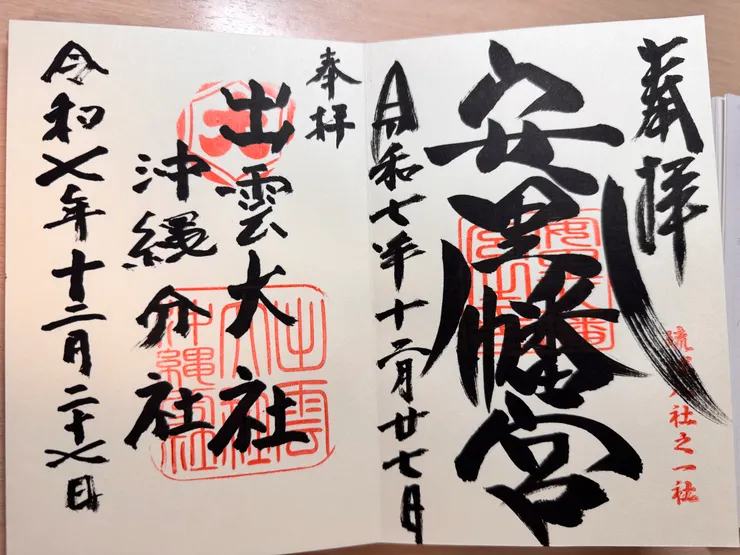 奉拝
安里八幡宮
琉球八社之一社
令和七年十二月廿七日
奉拝
出雲大社
沖縄分社
出雲
大社
令和七年十二月二十七日